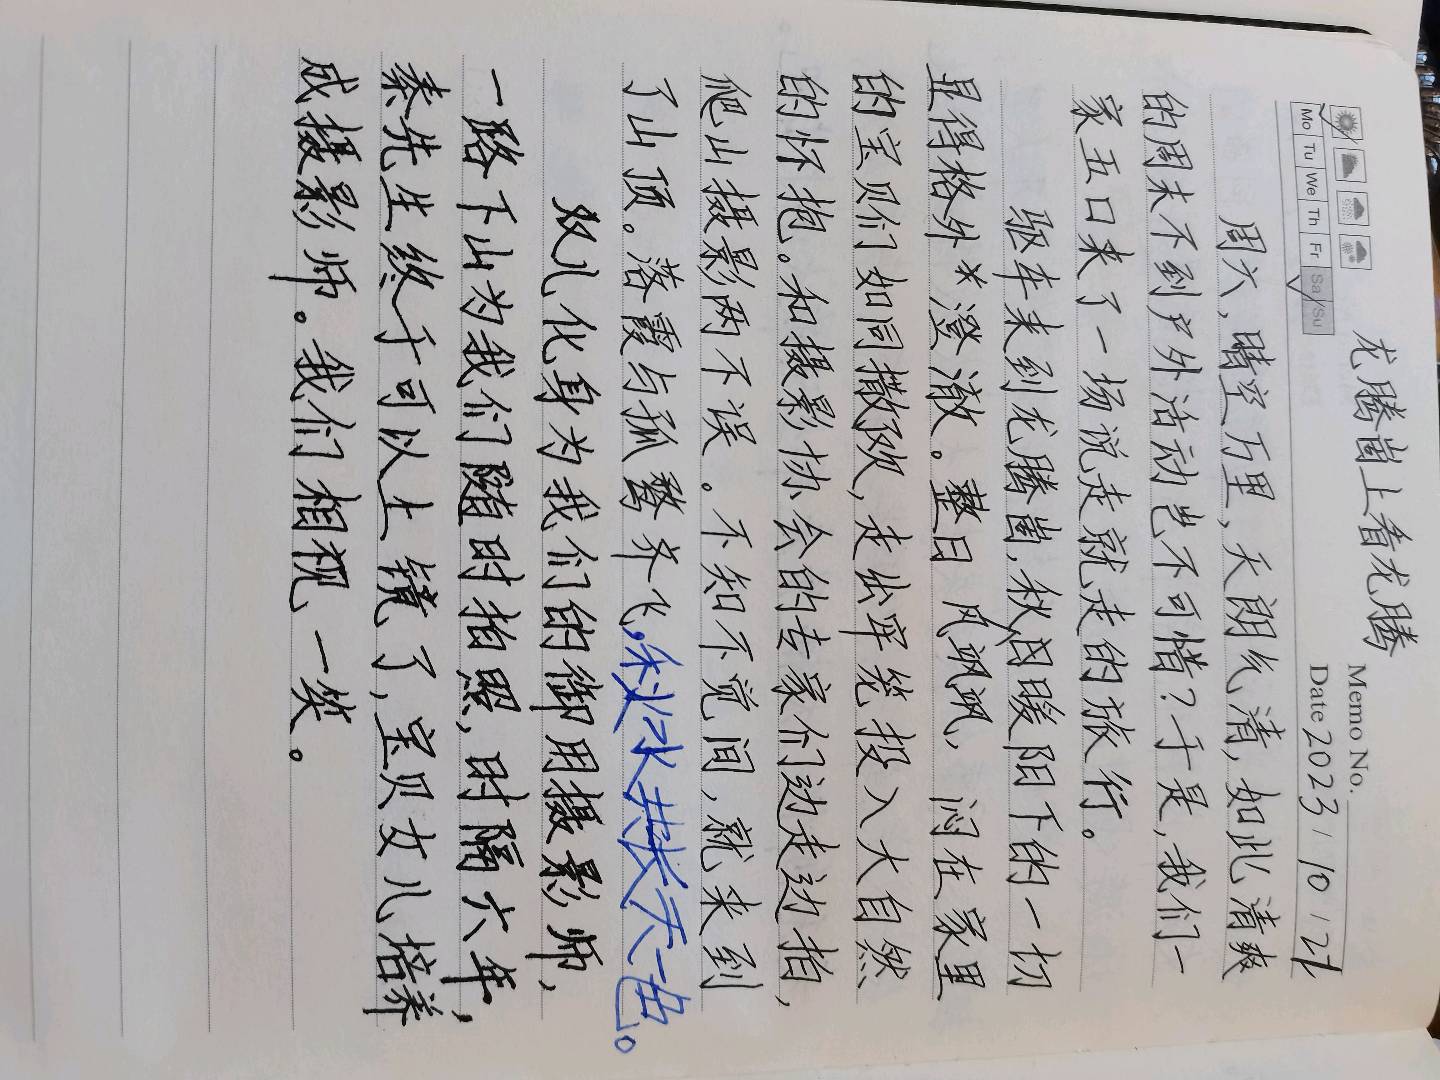 Memo No.
Mo Tu We Th Fr Sa/Su
Date 2023 / 10 / 21
龙腾崮上看龙腾
周六，晴空万里，天朗气清，如此清爽
的周末不到户外活动岂不可惜？于是，我们一
家五口来了一场说走就走的旅行。
驱车来到龙腾崮，秋日暖阳下的一切
显得格外澄澈。整日 风飒飒，闷在家里
的宝贝们如同撒欢，走出牢笼投入大自然
的怀抱。和摄影协会的专家们边走边拍，
爬山摄影两不误。不知不觉间，就来到
了山顶。落霞与孤鹜齐飞，秋水共长天一色。
双儿化身为我们的御用摄影师，
一路下山为我们随时拍照，时隔六年，
秦先生终于可以上镜了，宝贝女儿培养
成摄影师。我们相视一笑。